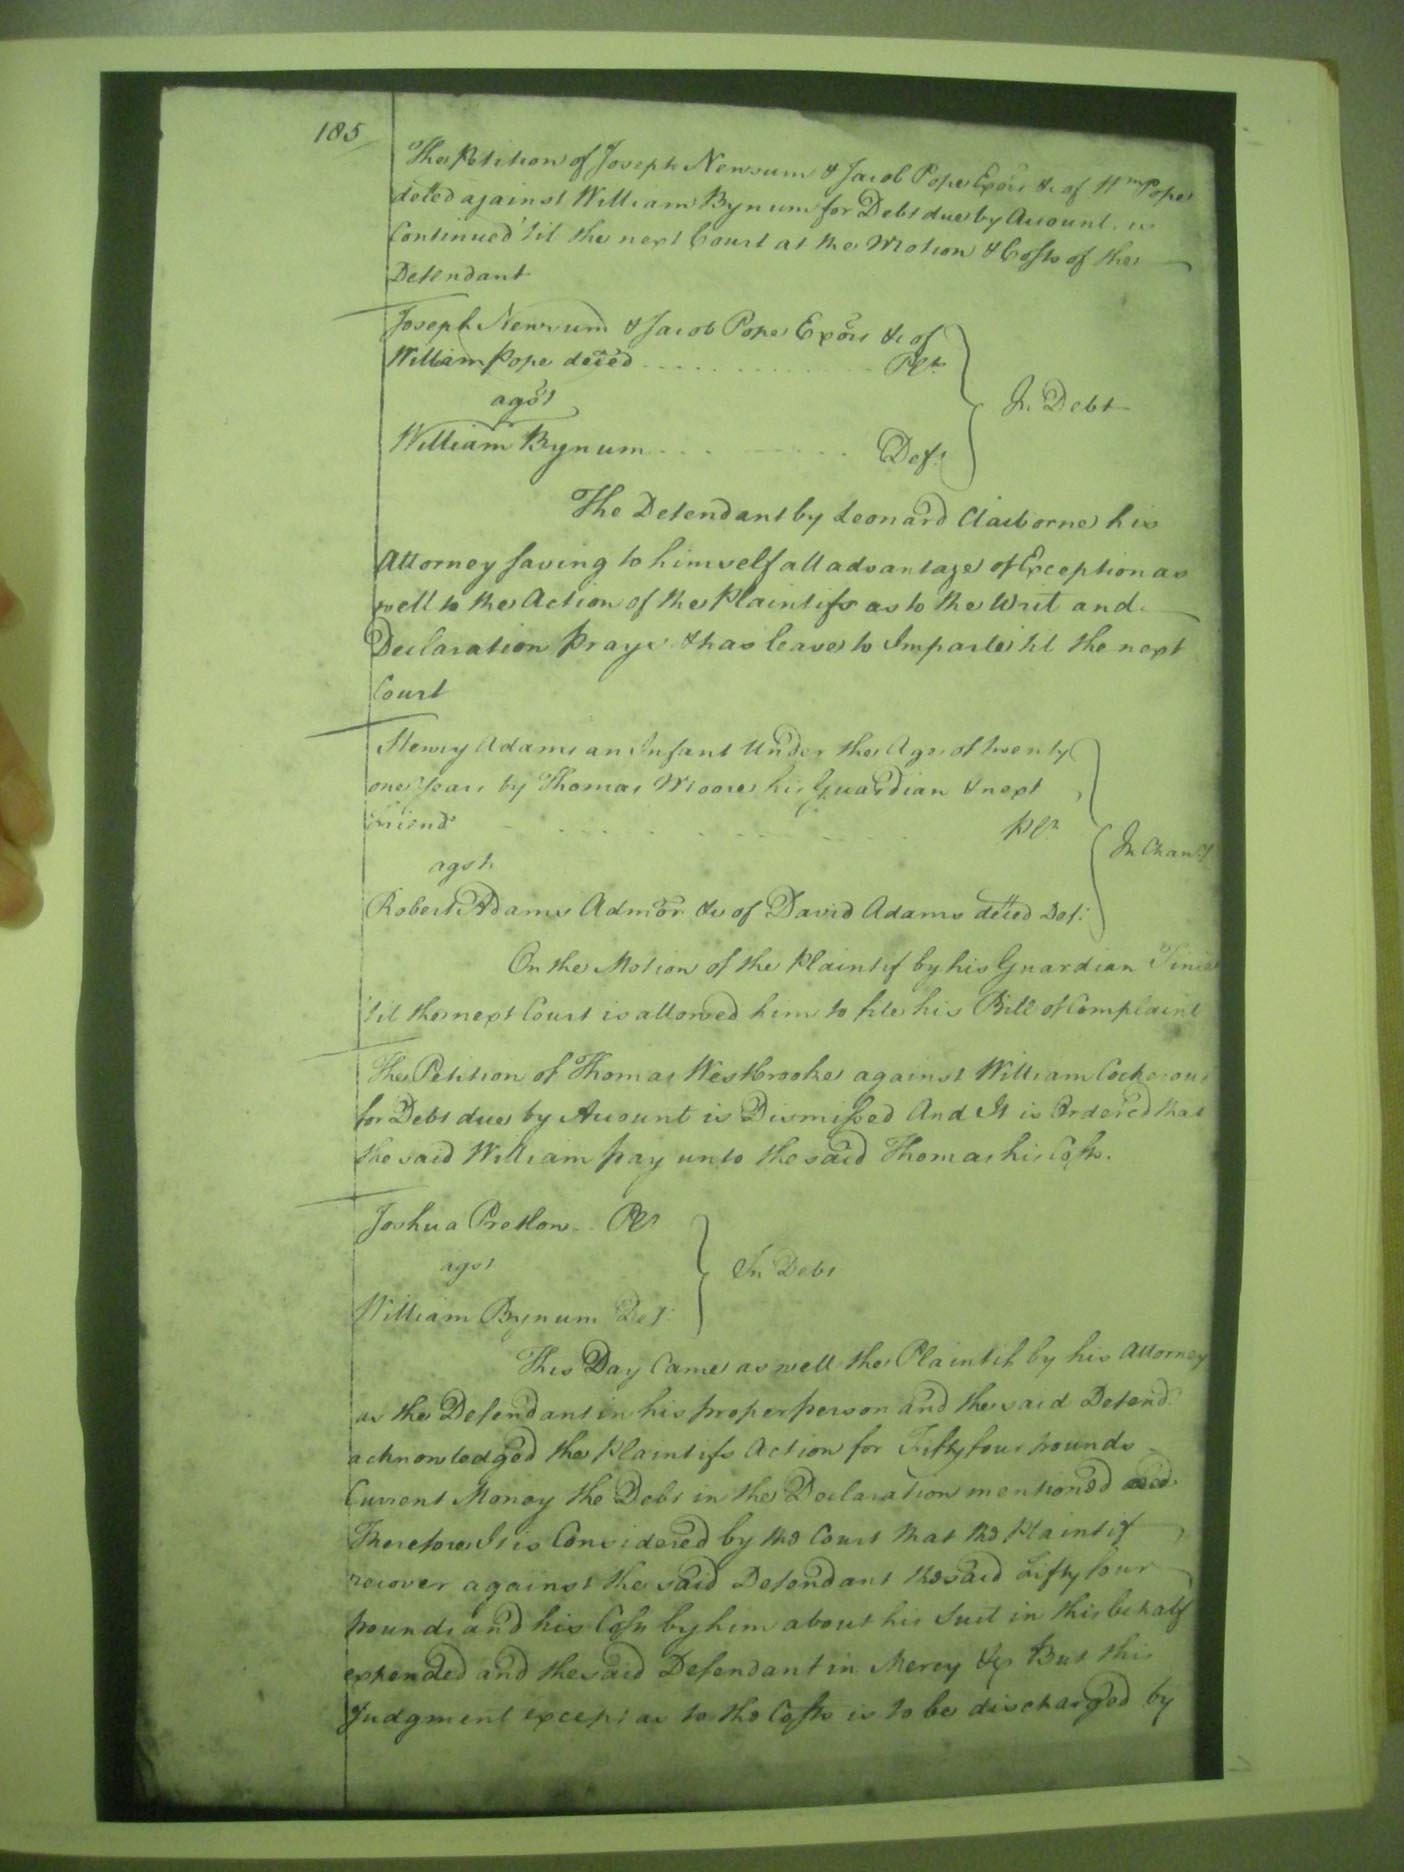 185
The Petition of Joseph Newsum & Jacob Pope Exōrs &c of Wm Pope
deced against William Bynum for Debt due by Account is
Continued 'til the next Court at the Motion & Costs of the
Defendant
Joseph Newsum & Jacob Pope Exōrs &c of
William Pope deced . . . . . . . . . . . . Plts
agst
William Bynum . . . . . . . . . Deft
In Debt
The Defendant by Leonard Claiborne his
Attorney saving to himself all advantage of Exception as
well to the Action of the Plaintifs as to the Writ and
Declaration prays & has leave to Imparle 'til the next
Court
Henry Adams an Infant Under the Age of twenty
one Years by Thomas Moore his Guardian & next
Friend . . . . . . . . Plt
In Chanc'y
agst
Robert Adams Admōr &c of David Adams deced Deft
On the Motion of the Plaintif by his Guardian Time
'til the next Court is allowed him to file his Bill of Complaint
The Petition of Thomas Westbrooke against William
for Debt due by Account is Dismissed And It is Ordered that
the said William pay unto the said Thomas his Costs.
Joshua Pretlow . . Plt
agst
In Debt
William Bynum Deft
This Day Came as well the Plaintif by his Attorney
as the Defendant in his proper person and the said Defend
acknowledged the Plaintifs Action for Fifty four pounds
Current Money the Debt in the Declaration mentioned
Therefore It is Considered by the Court that the Plaintif
recover against the said Defendant the said Fifty four
pounds and his Costs by him about his Suit in this behalf
expended and the said Defendant in Mercy &c But this
Judgment except as to the Costs is to be discharged by